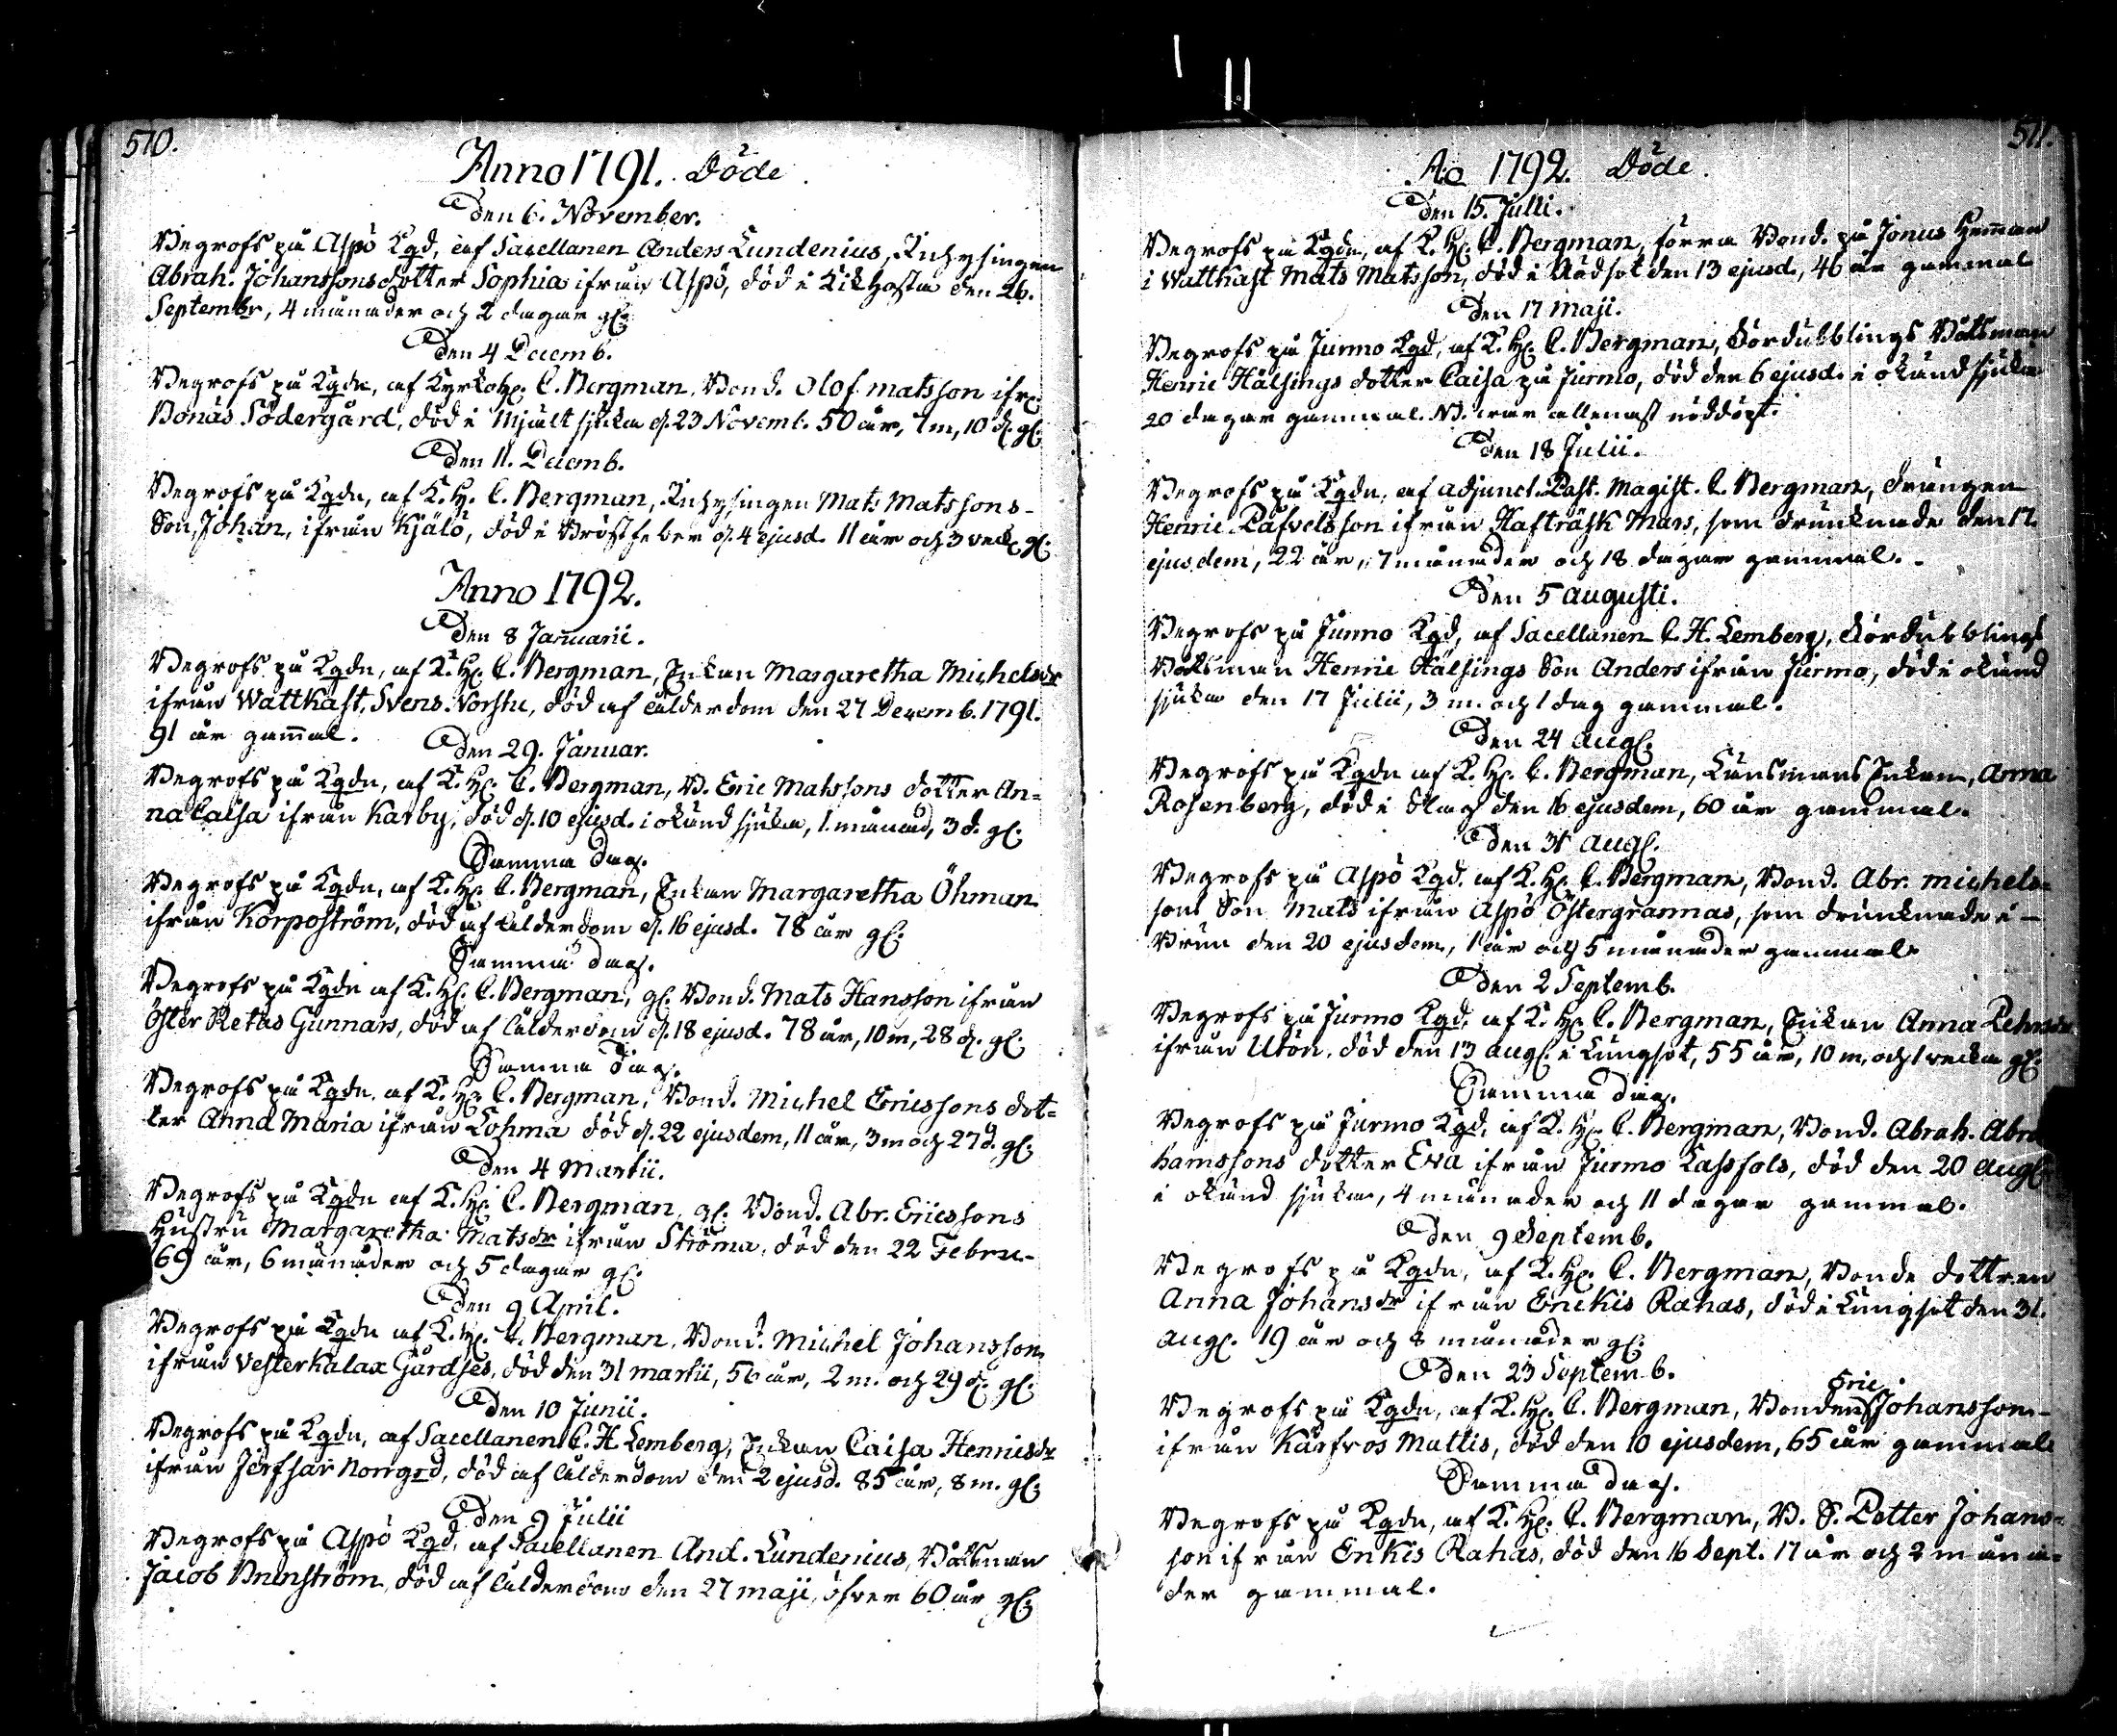 510.
Anno 1791. Döde.
Den 6. November.
Begrofs på Aspö Kgd, af Sacellanen Anders Lundenius, Inhysingen
Abrah. Johanssons dotter Sophia ifrån Aspö, död i Kikhosta den 26.
Septembr, 4 månader och 2 dagar gl:
Den 4 Decemb.
Begrofs på Kgdn, af Kyrkoh. C. Bergman, Bond. Olof Matsson ifr:
Bonäs Södergård, död i Mjält sjuka d. 23 Novemb. 50 år, 1 m, 10 d. gl:
Den 11. Decemb.
Begrofs på Kgdn, af K. H. C. Bergman, Inhysingen Mats Matssons-
Son, Johan, ifrån Kjälö, död i Bröstfeber d. 4 ejusd. 11 år och 3 veck. gl:
Anno 1792.
Den 8 Januarii.
Begrofs på Kgdn, af K. H. C. Bergman, Enkan Margaretha Michelsdr
ifrån Wattkast, Svens Norstu, död af ålderdom den 27 Decemb. 1791.
91 år gam̄al.
Den 29. Januar.
Begrofs på Kgdn, af K. H. C. Bergman, B. Eric Matssons dotter An=
na Caisa ifrån Karby, död d. 10 ejusd. i okänd sjuka, 1 månad, 3 d. gl:
Samma dag.
Begrofs på Kgdn, af K. H. C. Bergman, Enkan Margaretha Öhman
ifrån Korpoström, död af ålderdom d. 16 ejusd. 78 år gl:
Samma dag.
Begrofs på Kgdn af K. H. C. Bergman, gl. Bond. Mats Hansson ifrån
Öster Retais Gunnars, död af ålderdom d. 18 ejusd. 78 år, 10 m, 28 d. gl:
Samma dag.
Begrofs på Kgdn, af K. H. C. Bergman, Bond. Michel Ericssons dot=
ter Anna Maria ifrån Lohma död d. 22 ejusdem, 11 år, 3 m och 27 d. gl:
Den 4 Martii.
Begrofs på Kgdn af K. H. C. Bergman, gl. Bond. Abr. Ericssons
Hustru Margaretha Matsdr ifrån Ströma, död den 22 Febru-
69 år, 6 månader och 5 dagar gl:
Den 9 April.
Begrofs på Kgdn af K. H. C. Bergman, Bond. Michel Johansson
ifrån Vesterkalax Gårdses, död den 31 Martii, 56 år, 2 m. och 29 d. gl:
Den 10 Junii.
Begrofs på Kgdn, af Sacellanen C. H. Lemberg, Enkan Caisa Henricsdr
ifrån Jorfsar Norrgrd, död af ålderdom den 2 ejusd. 85 år, 8 m. gl:
Den 9 Julii
Begrofs på Aspö Kgd, af Sacellanen And. Lundenius, Båtsman
Jacob Brunström, död af ålderdom den 27 Maji, öfver 60 år gl:
511.
Ao 1792. Döde.
Den 15. Julii.
Begrofs på Kgdn, af K. H. C. Bergman, förra Bond. på Jonus Hem̄an
i Wattkast Mats Matsson, död i Rödsot den 13 ejusd, 46 år gammal
Den 17 Maji.
Begrofs på Jurmo Kgd, af K. H. C. Bergman, Fördubblings Båtsman
Henric Hälsings dotter Caisa på Jurmo, död den 6 ejusd. i okänd sjuka
20 dagar gammal. NB. war allenast nöddöpt.
Den 18 Julii.
Begrofs på Kgdn, af adjunct. Past. Magist. C. Bergman, drängen
Henric Påfvelsson ifrån Hafträsk Mars, som drunknade den 17.
ejusdem, 22 år, 7 månader och 18 dagar gammal.
Den 5 Augusti.
Begrofs på Jurmo Kgd, af Sacellanen C. H. Lemberg, Fördubblings
Båtsman Henric Hälsings Son Anders ifrån Jurmo, död i okänd
sjuka den 17 Julii, 3 m. och 1 dag gammal.
Den 24 Aug:
Begrofs på Kgdn af K. H. C. Bergman, Länsmans Enkan, Anna
Rosenberg, död i Slag den 16 ejusdem, 60 år gammal.
Den 31 Aug:
Begrofs på Aspö Kgd, af K. H. C. Bergman, Bond. Abr. Michels=
sons Son Mats ifrån Aspö Östergrannas, som drunknade i -
Brun den 20 ejusdem, 1 år och 5 månader gammal
Den 2 Septemb.
Begrofs på Jurmo Kgd, af K. H. C. Bergman, Enkan Anna
ifrån Utön, död den 13 Aug: i Lungsot, 55 år, 10 m. och 1 vecka gl:
Samma dag.
Begrofs på Jurmo Kgd, af K. H. C. Bergman, Bond. Abrah. Abra
hamssons dotter Eva ifrån Jurmo Kassfols, död den 20 Aug:
i okänd sjuka, 4 månader och 11 dagar gammal.
Den 9 Septemb.
Begrofs på Kgdn, af K. H. C. Bergman, Bonde dottren
Anna Johansdr ifrån Enekis Rahas, död i Lungsot den 31.
Aug: 19 år och 8 månader gl:
Den 23 Septemb.
Begrofs på Kgdn, af K. H. C. Bergman, Bonden Eric Johansson-
ifrån Kårfvos Mattis, död den 10 ejusdem, 65 år gammal
Samma dag.
Begrofs på Kgdn, af K. H. C. Bergman, B. S. Petter Johans=
son ifrån Enkis Rahas, död den 16 Sept. 17 år och 2 måna=
der gammal.